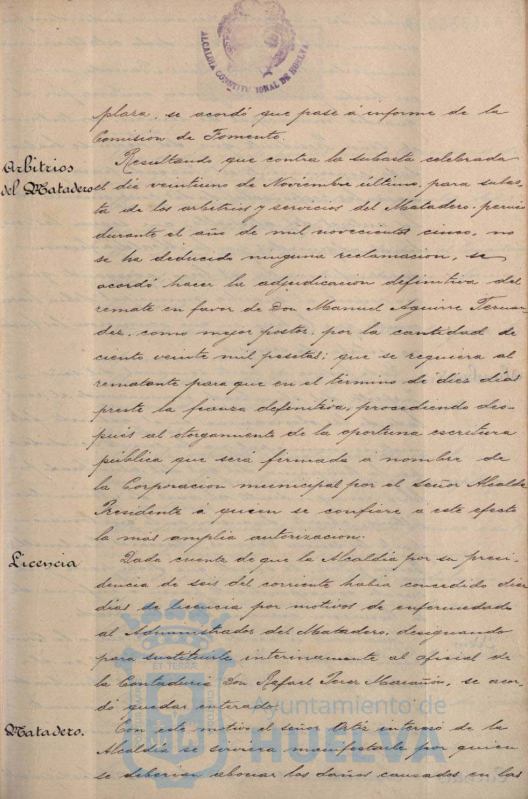 ALCALDIA CONSTITUCIONAL DE HUELVA
plaza, se acordó que pase á informe de la
Comision de Fomento.
Arbitrios
del Matadero
Resultando que contra la subasta celebrada
el dia veintiuno de Noviembre último, para subas-
ta de los arbitrios y servicios del Matadero
durante el año de mil novecientos cinco, no
se ha deducido ninguna reclamacion, se
acordó hacer la adjudicacion definitiva del
remate en favor de Don Manuel Aguirre Fernan-
dez, como mejor postor, por la cantidad de
ciento veinte mil pesetas; que se requiera al
rematante para que en el término de diez dias
preste la fianza definitiva, procediendo des-
pués al otorgamiento de la oportuna escritura
pública que será firmada á nombre de
la Corporacion municipal por el Señor Alcalde
Presidente á quien se confiere á este efecto
la más amplia autorizacion.
Licencia
Dada cuenta de que la Alcaldia por su presi-
dencia de seis del corriente habia concedido diez
dias de licencia por motivos de enfermedad
al Administrador del Matadero, designando
para sustituirle interinamente al oficial de
la Contaduria Don Rafael Perez Marañón, se acor-
dó quedar enterado.
Matadero.
Con este motivo el señor Ortiz interesó de la
Alcaldia se sirviera manifestarle por quien
se deberian abonar los daños causados en las
Ayuntamiento de
HUELVA